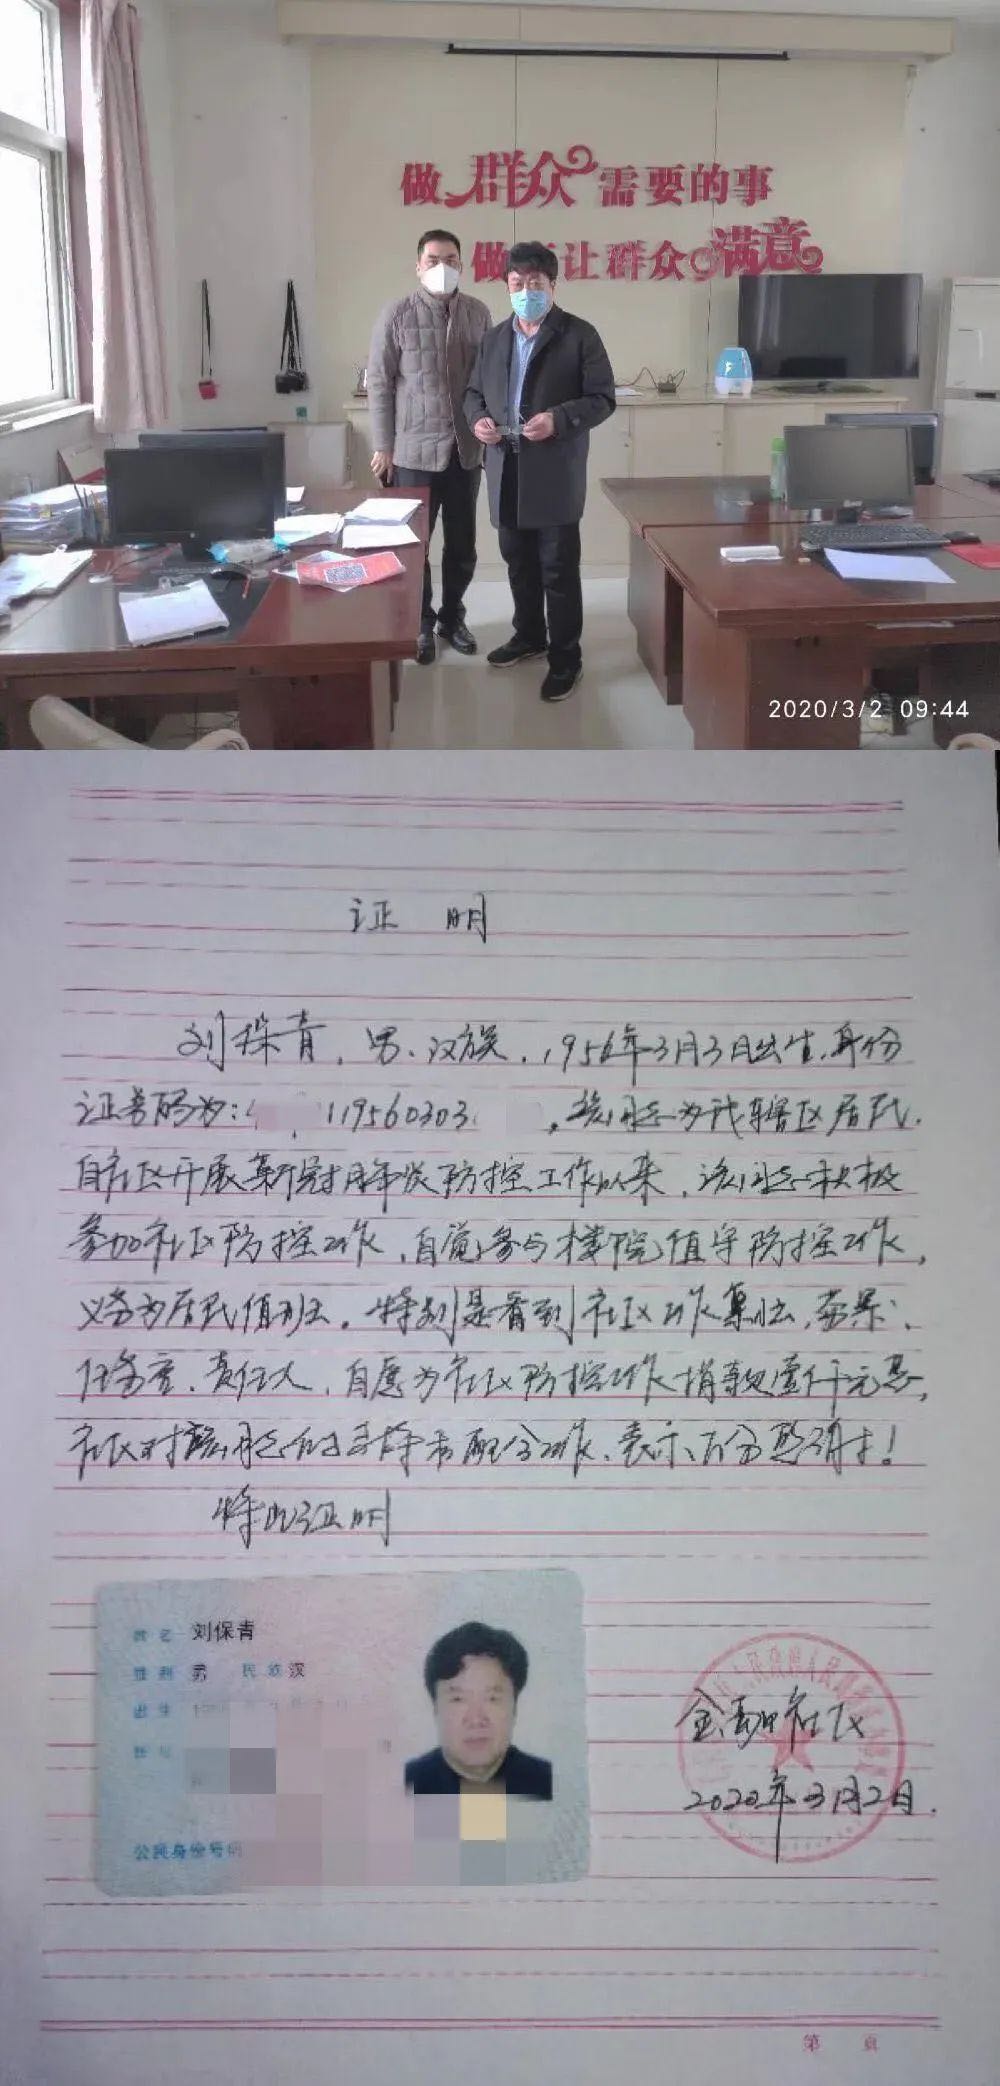 做群众需要的事
做 让群众满意
2020/3/2 09:44
证 明
刘保青，男、汉族，1956年3月3日出生，身份
证号码为：4 119560303 ，该同志为我辖区居民，
自社区开展新冠肺炎防控工作以来，该同志积极
参加社区防控工作，自觉参与楼院值守防控工作，
义务为居民值班。特别是看到社区工作 、
任务重、责任大，自愿为社区防控工作捐款壹仟元整，
社区对该同志的支持和配合工作、表示万分感谢！
特此证明
姓名 刘保青
性别 男 民族 汉
出生
公民身份号码
金融社区
2020年3月2日.
第 页